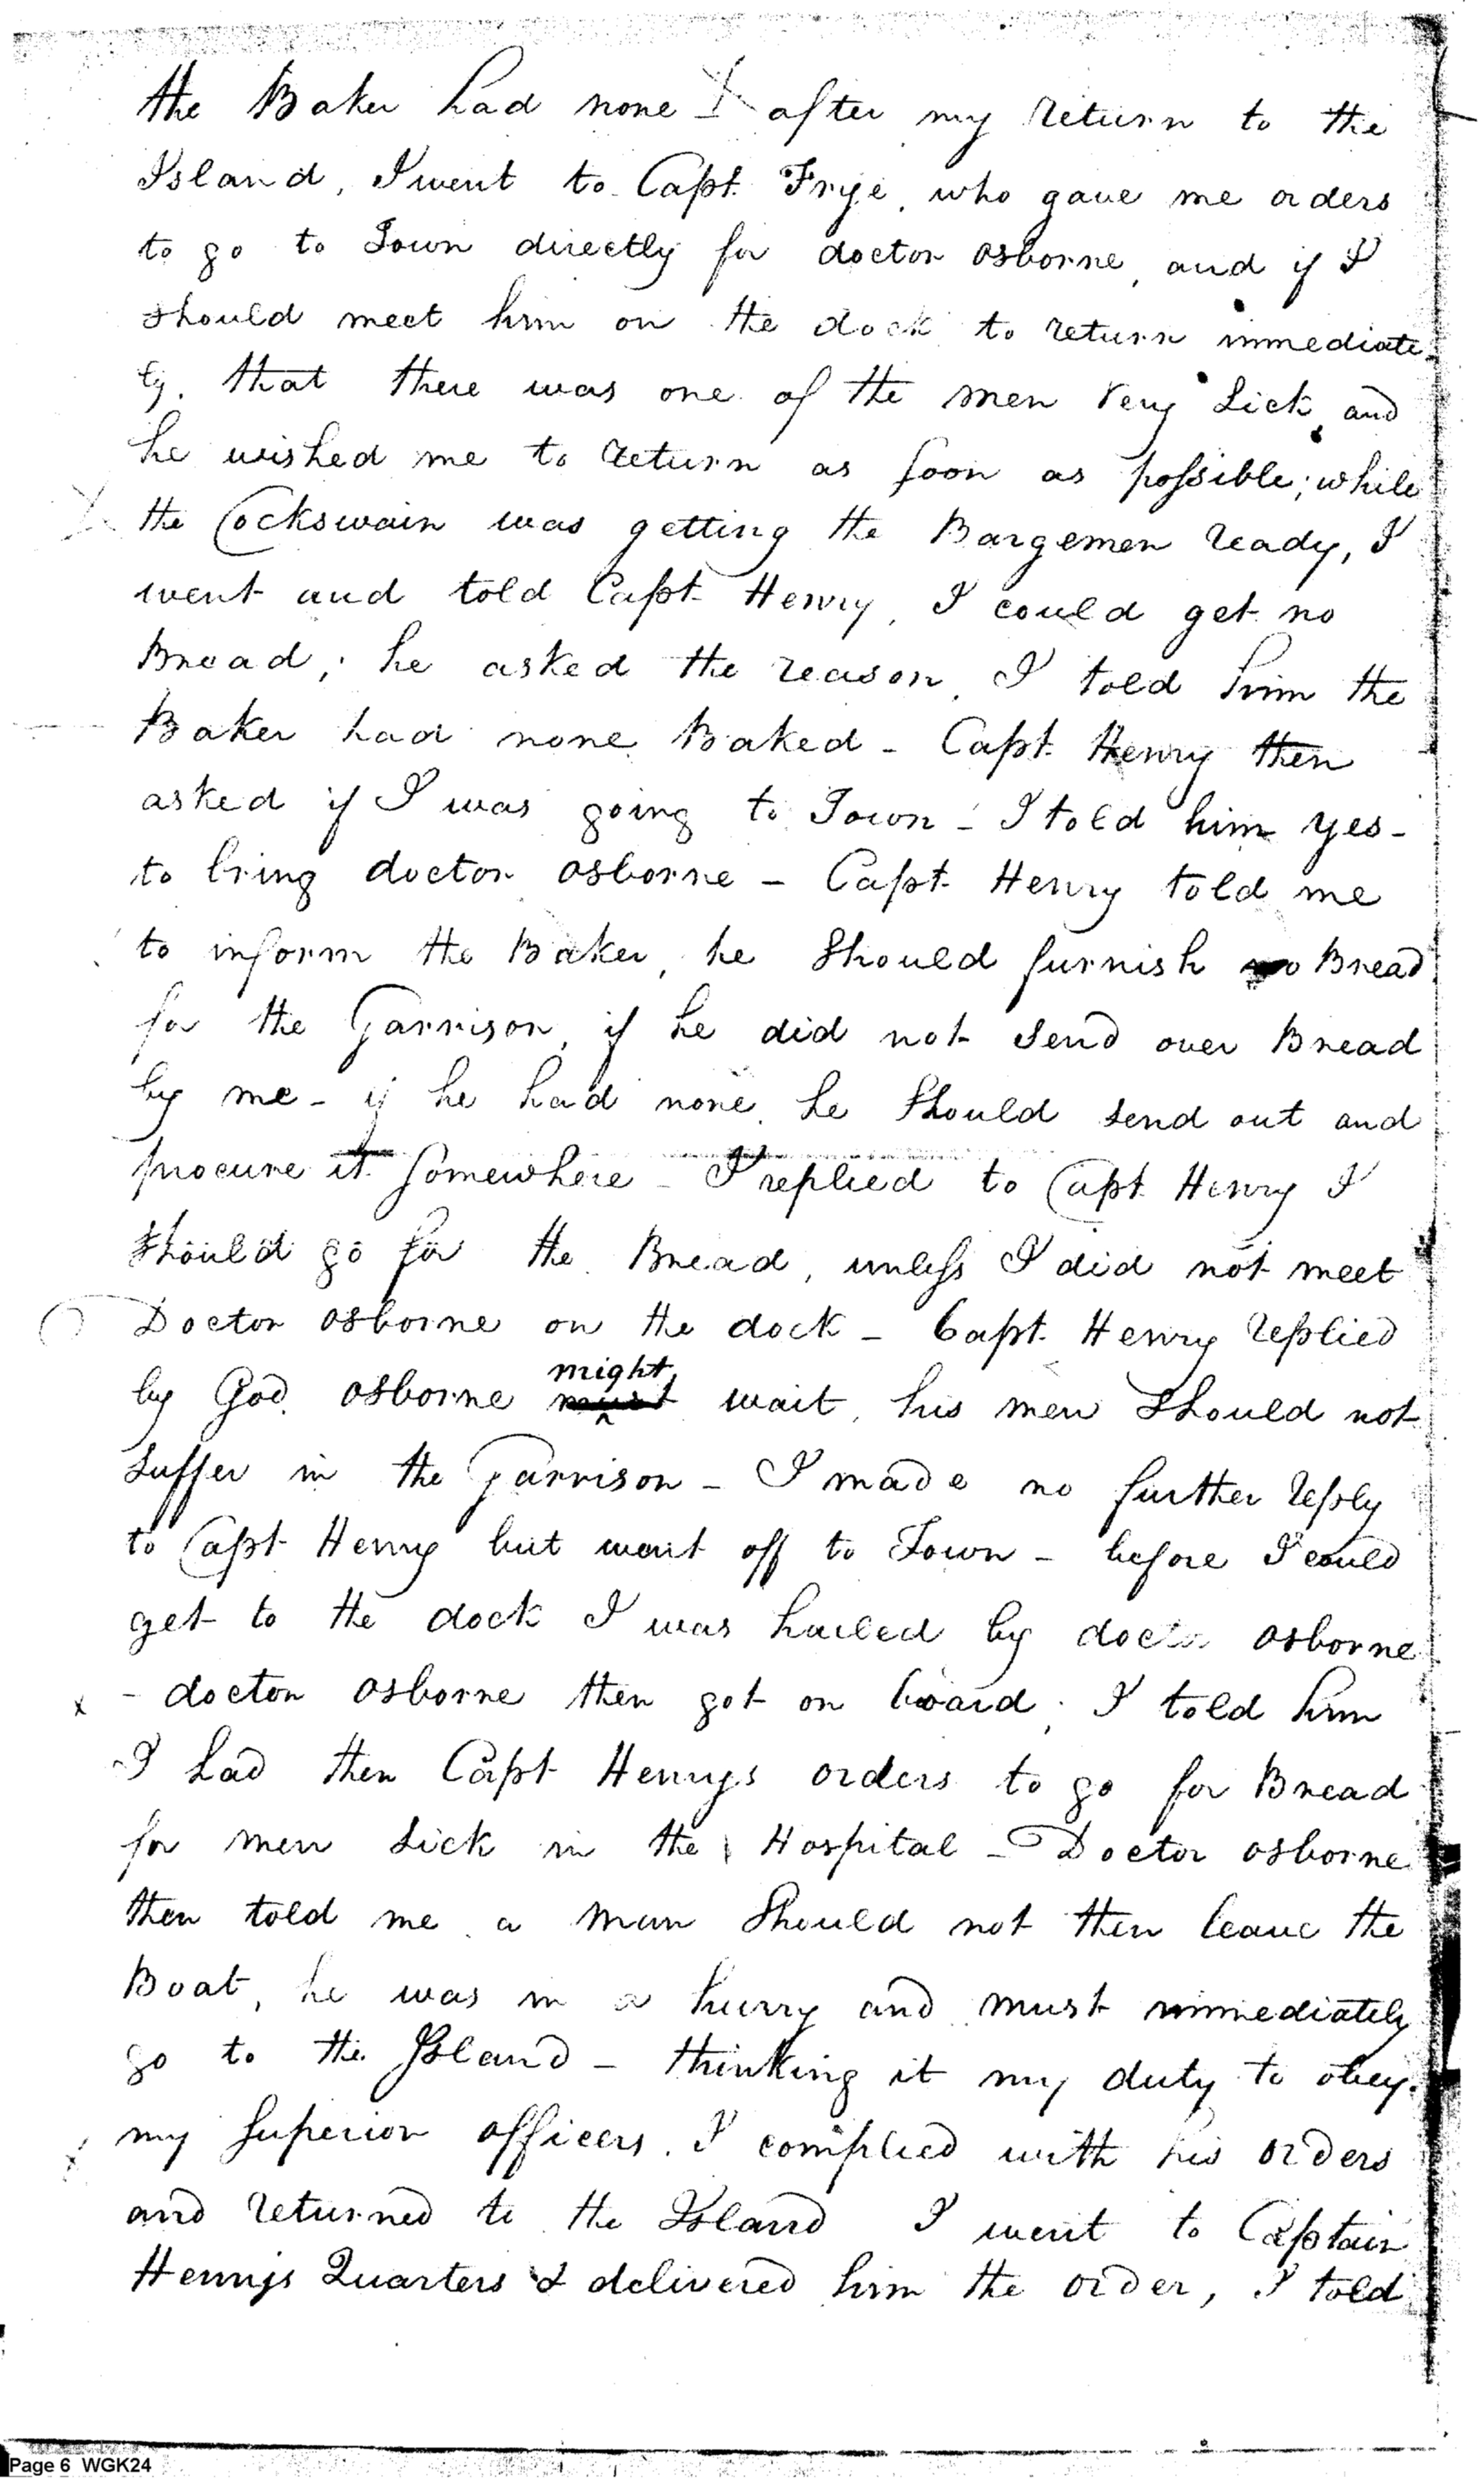 the Baker had none X after my return to the
Island, I went to Capt. Frye, who gave me orders
to go to Town directly for doctor Osborne, and if I
should meet him on the dock to return immediate-
ly. that there was one of the men very Sick, and
he wished me to return as soon as possible; while
the Cockswain was getting the Bargemen ready, I
went and told Capt. Henry, I could get no
Bread; he asked the reason, I told him the
Baker had none Baked - Capt. Henry then
asked if I was going to Town - I told him yes -
to bring doctor Osborne - Capt. Henry told me
to inform the Baker, he Should furnish no Bread
for the Garrison, if he did not Send over Bread
by me - if he had none, he Should Send out and
procure it Somewhere - I replied to Capt Henry I
Should go for the Bread, unless I did not meet
Doctor Osborne on the dock - Capt. Henry replied
might
by God, Osborne must wait, his men Should not
Suffer in the Garrison - I made no further reply
to Capt Henry but went off to Town - before I could
get to the dock I was hailed by doctor Osborne
x - doctor Osborne then got on board; I told him
I had then Capt Henrys orders to go for Bread
for men Sick in the Hospital - Doctor Osborne
then told me a man Should not then leave the
Boat, he was in a hurry and must immediately
go to the Island - thinking it my duty to obey
my Superior officers. I complied with his orders
and returned to the Island I went to Captain
Henrys Quarters & delivered him the order, I told
Page 6 WGK24